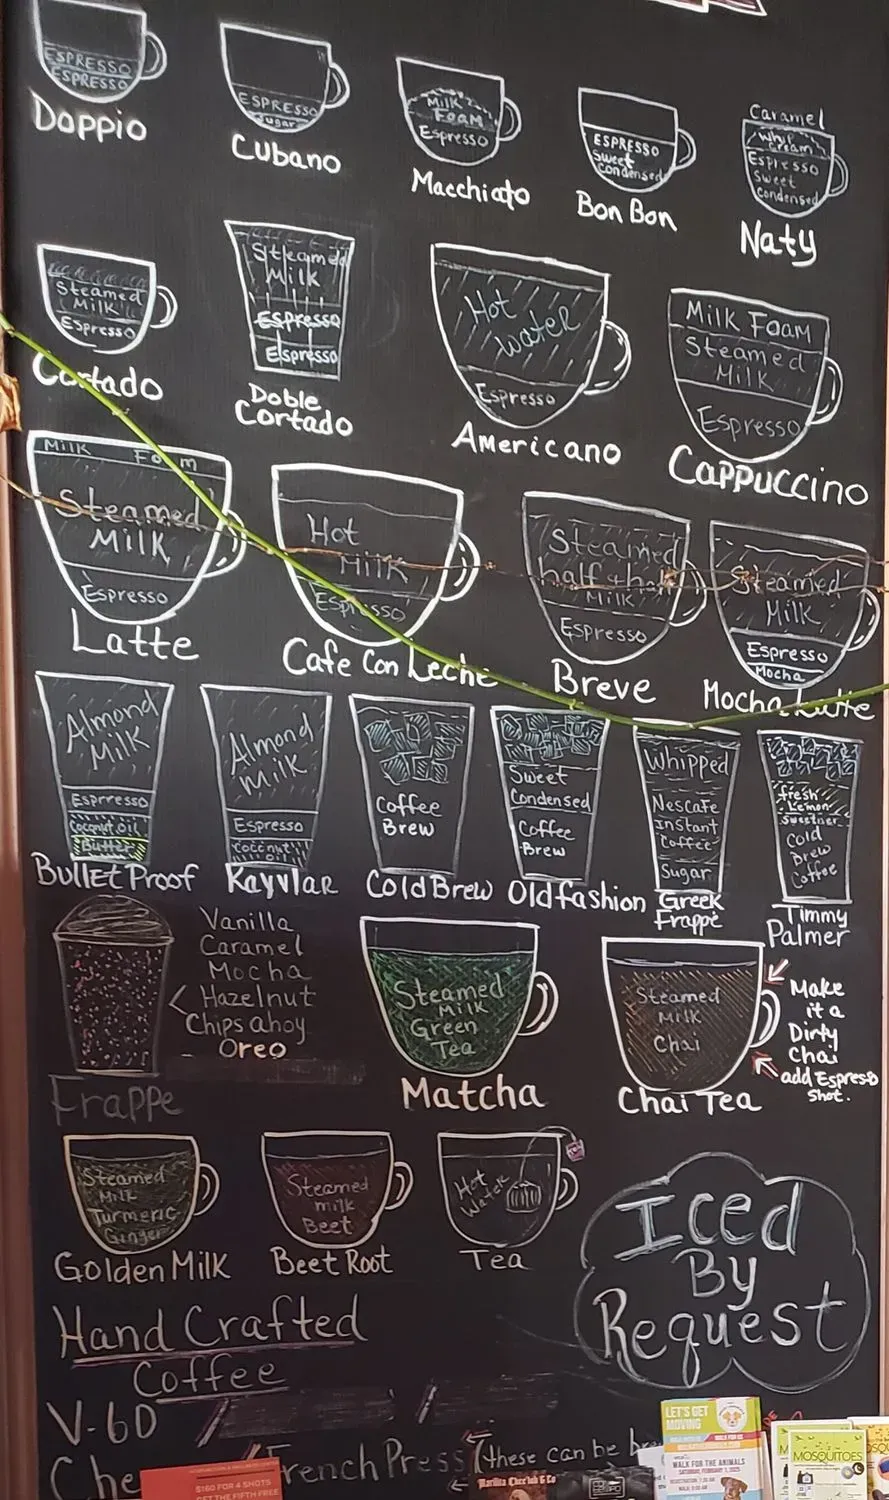 ESPRESSO
ESPRESSO
Doppio
ESPRESSO
Sugar
Cubano
Milk
Foam
Espresso
Macchiato
ESPRESSO
Sweet
Condensed
Bon Bon
Caramel
Whip
Cream
Espresso
Sweet
Condensed
Naty
Steamed
Milk
Espresso
Cortado
Steamed
Milk
Espresso
Espresso
Doble
Cortado
Hot
Water
Espresso
Americano
Milk Foam
Steamed
Milk
Espresso
Cappuccino
Milk Foam
Steamed
Milk
Espresso
Latte
Hot
Milk
Espresso
Cafe Con Leche
Steamed
half & half
Milk
Espresso
Breve
Steamed
Milk
Espresso
Mocha
Mocha Latte
Almond
Milk
Esprresso
Coconut oil
Butter
Bullet Proof
Almond
Milk
Espresso
Coconut
Oil
Kayvlar
Coffee
Brew
Cold Brew
Sweet
Condensed
Coffee
Brew
Old fashion
Whipped
Nescafe
Instant
Coffee
Sugar
Greek
Frappe
fresh
Lemon
Sweetner
Cold
Brew
Coffee
Timmy
Palmer
Vanilla
Caramel
Mocha
Hazelnut
Chips ahoy
Oreo
Frappe
Steamed
Milk
Green
Tea
Matcha
Steamed
Milk
Chai
Chai Tea
Make
it a
Dirty
Chai
add Espresso
Shot.
Steamed
Milk
Turmeric
Ginger
Golden Milk
Steamed
milk
Beet
Beet Root
Hot
Water
Tea
Iced
By
Request
Hand Crafted
Coffee
V-60
Che
French Press
(these can be
LET'S GET
MOVING
WALK FOR THE ANIMALS
SATURDAY, FEBRUARY 1, 2025
MOSQUITOES
$160 FOR 4 SHOTS
GET THE FIFTH FREE